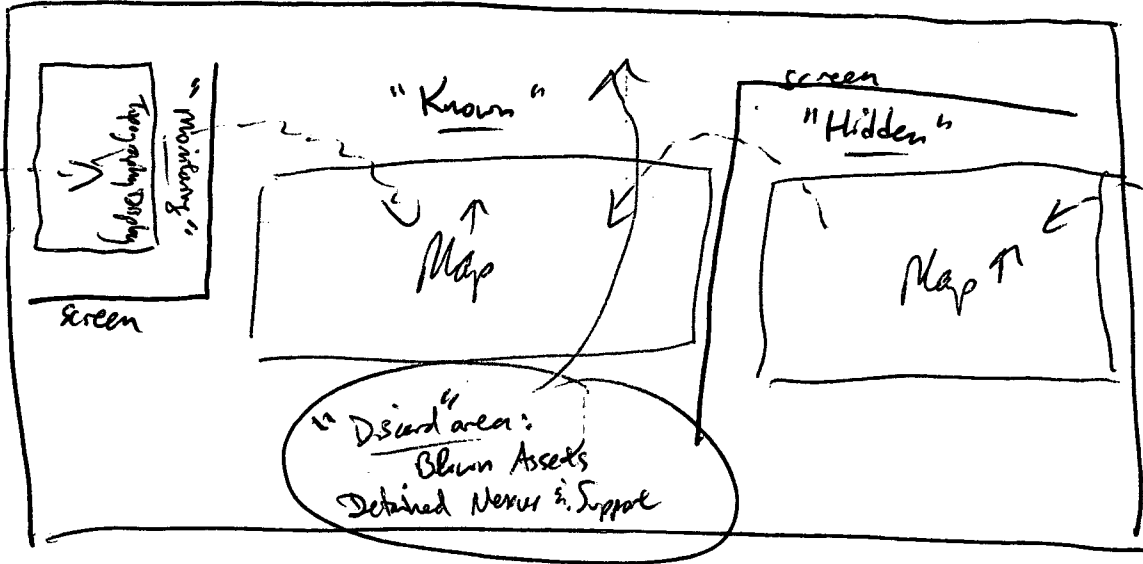 "Monitoring"
Display
screen
"Known"
Map
screen
"Hidden"
Map
"Discard" area:
Blown Assets
Detained Nexus & Support